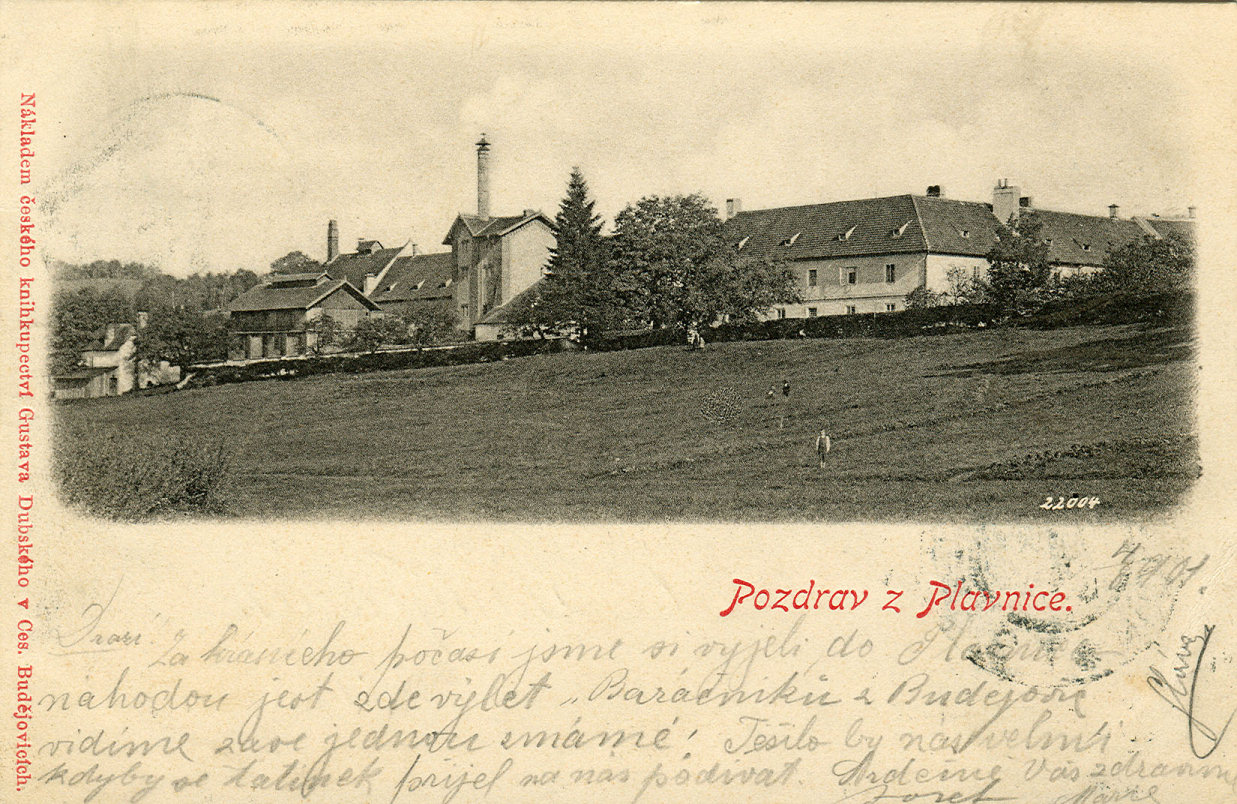 Nákladem českého knihkupectví Gustava Dubského v Ces. Budějovicích.
22004
Pozdrav z Plavnice.
Drazí!
Za krásného počasí jsme si vyjeli do Plavnice
náhodou jest zde výlet „Baráčníků z Budějovic
vidíme zase jednou známé! Těšilo by nás velmi
kdyby se tatínek přijel na nás podívat. Srdečně Vás zdravíme
Josef Marie